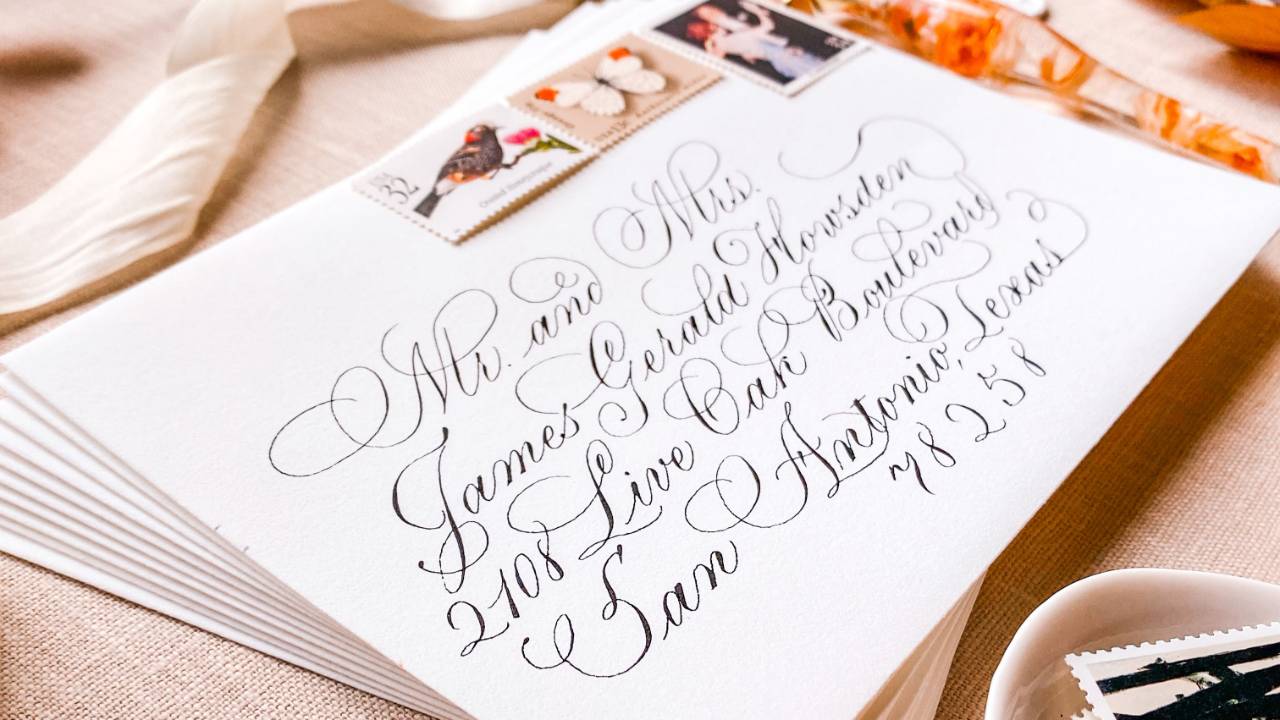 32
Mr. and Mrs.
James Gerald Howsden
2108 Live Oak Boulevard
San Antonio, Texas
78258